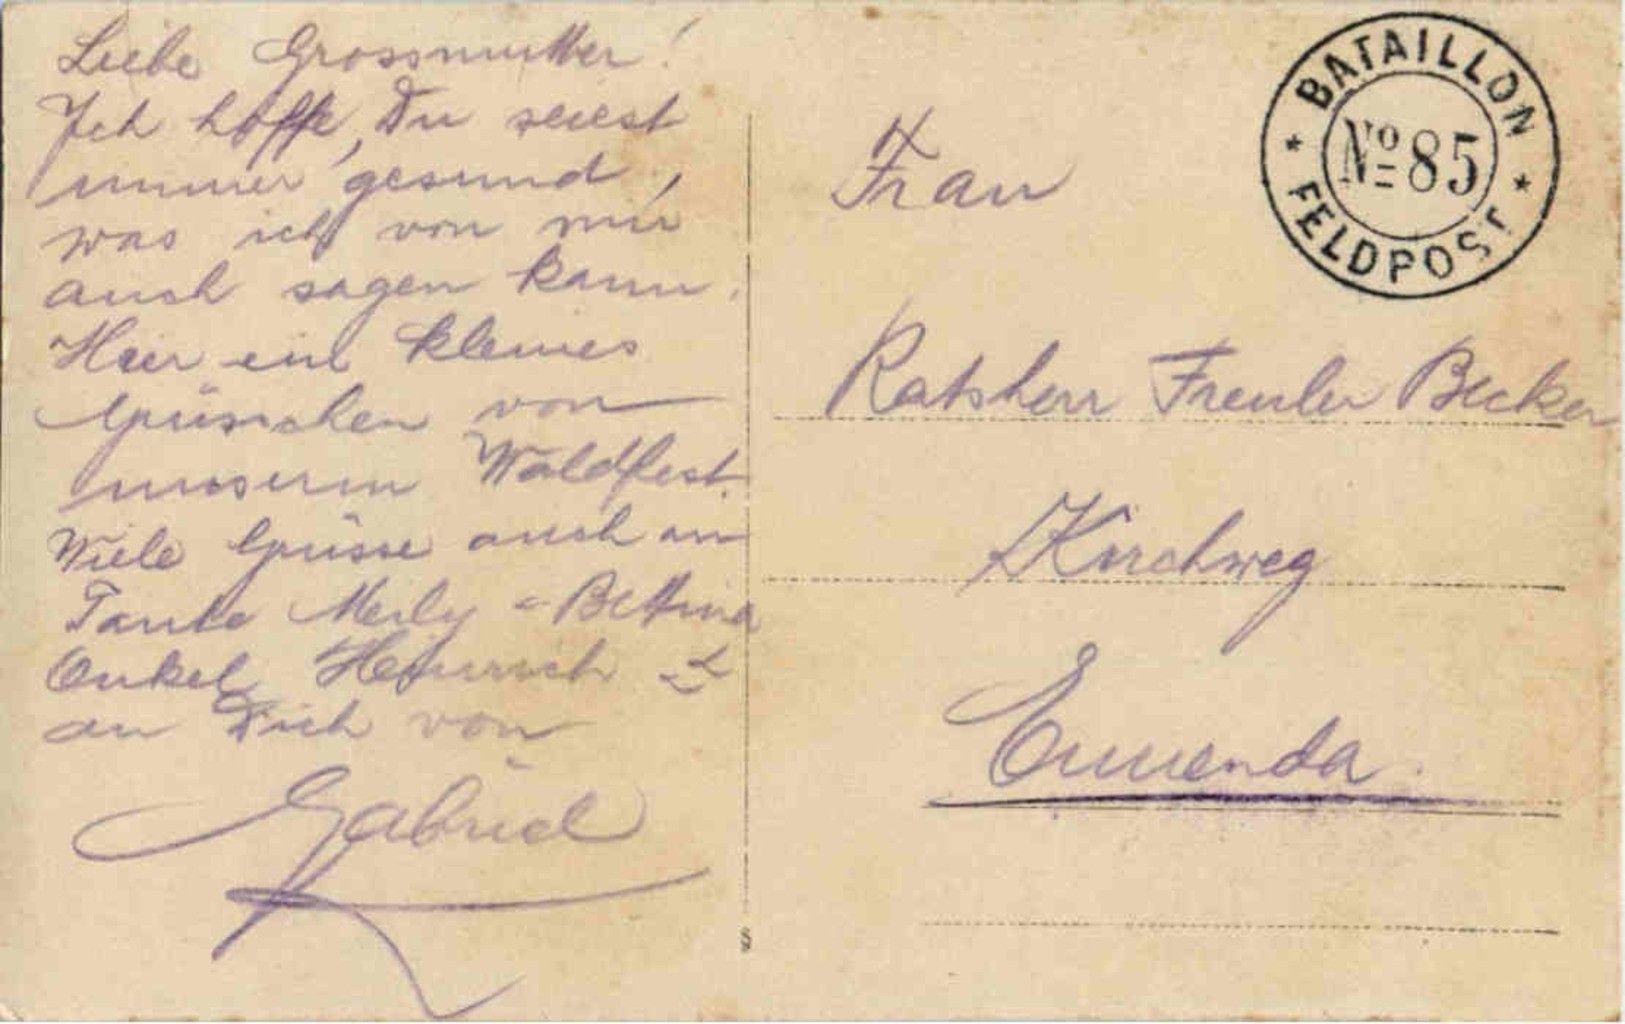 Liebe Grossmutter!
Ich hoffe, Du seiest
immer gesund,
was ich von mir
auch sagen kann.
Hier ein kleines
Grüsschen von
unserm Waldfest.
Viele Grüsse auch an
Tante Meily & Bettina
Onkel Heinrich &
an Dich von
Gabriel
BATAILLON
Nº 85
FELDPOST
Frau
Ratsherr Freuler Becker
Kirchweg
Ennenda.